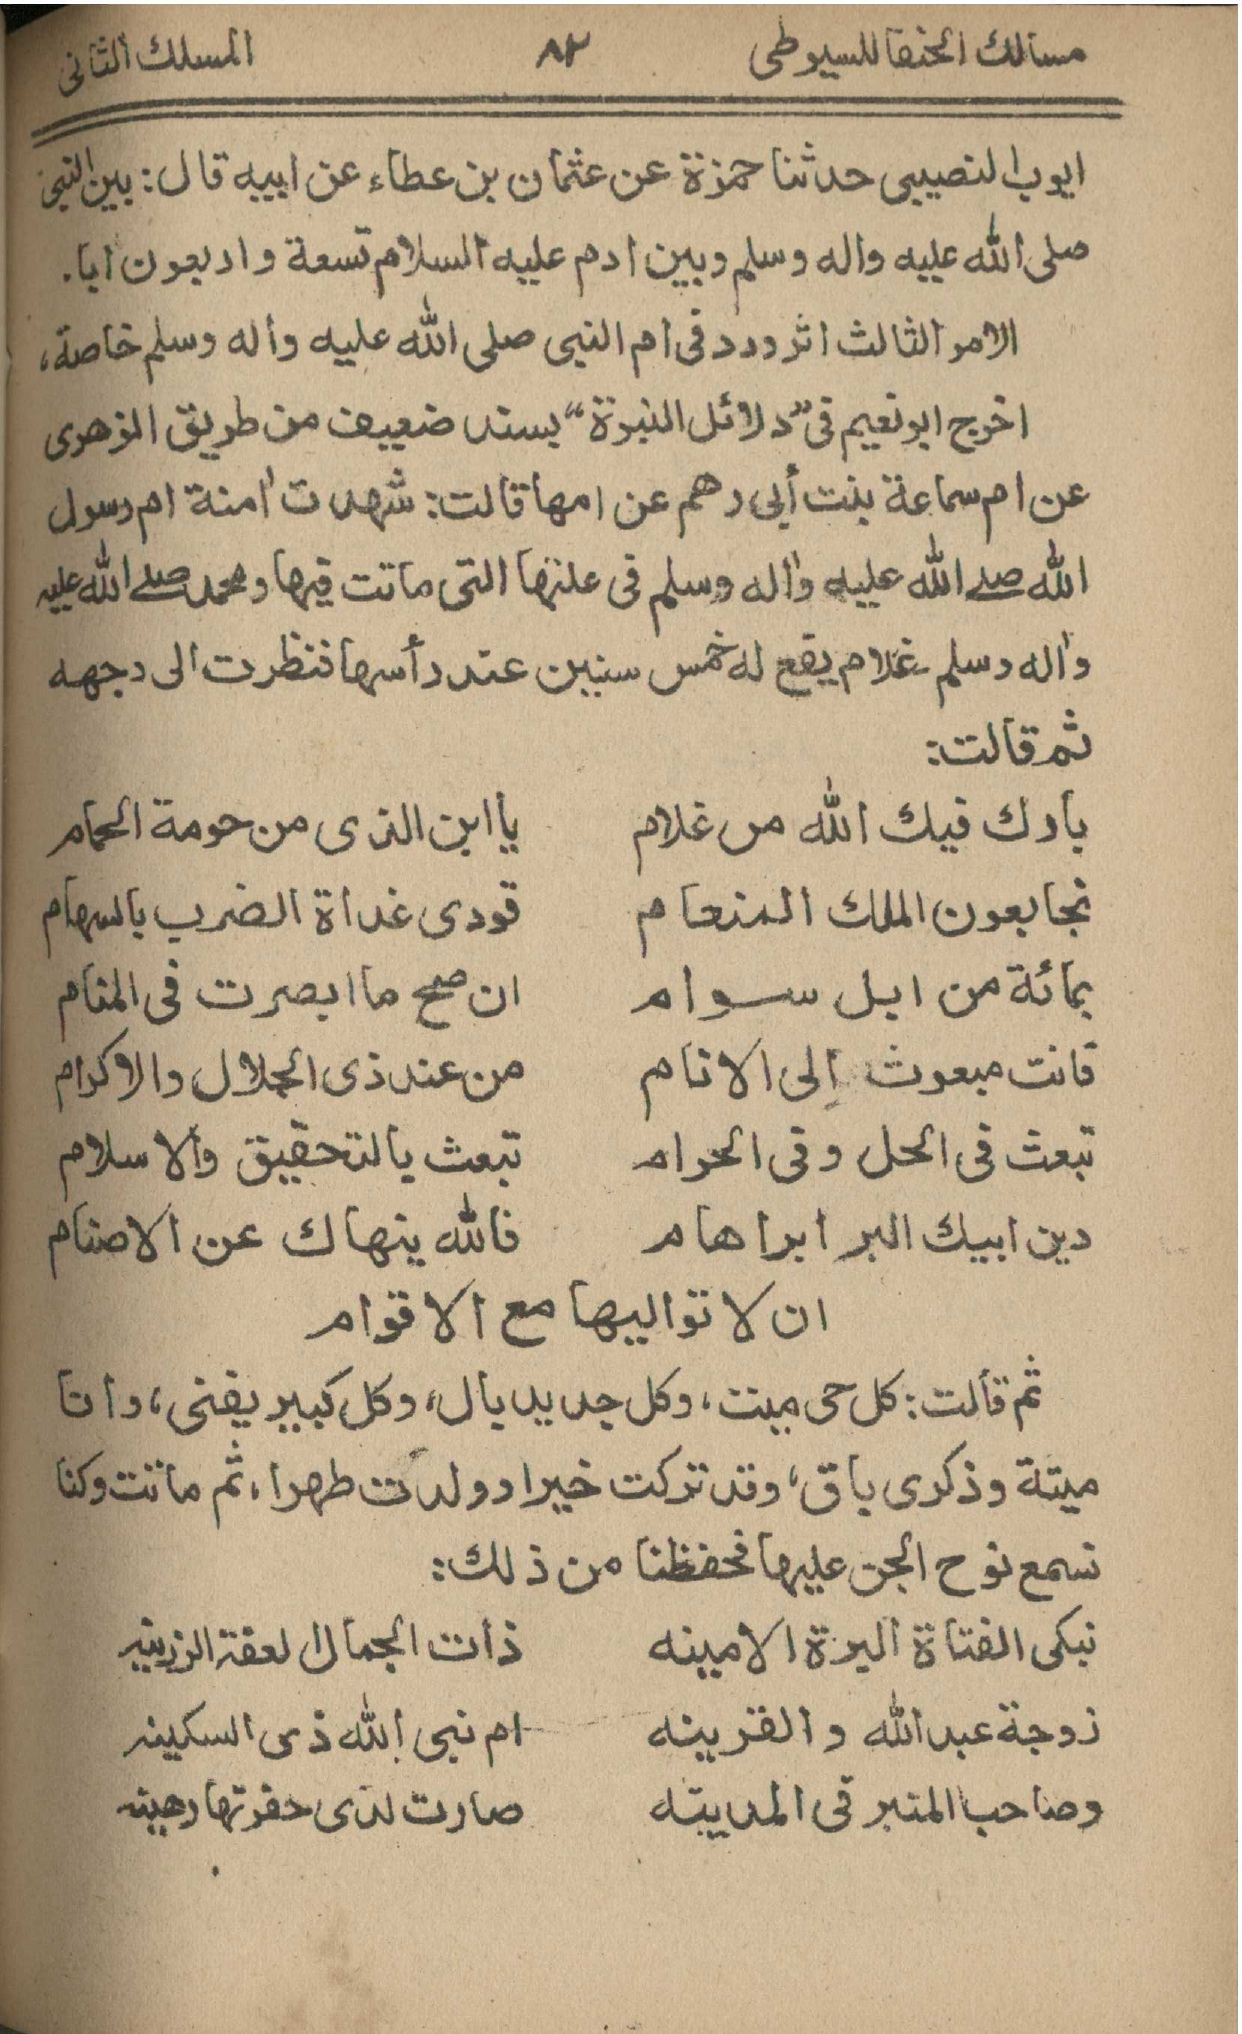 مسالك الحنفا للسيوطى ٨٢ المسلك الثانى
ايوب النصيبى حدثنا حمزة عن عثمان بن عطاء عن ابيه قال: بين النبى
صلى الله عليه واله وسلم وبين ادم عليه السلام تسعة واربعون ابا.
الامر الثالث اثر ورد فى ام النبى صلى الله عليه وآله وسلم خاصة،
اخرج ابو نعيم فى ”دلائل النبوة“ بسند ضعيف من طريق الزهرى
عن ام سماعة بنت أبى رهم عن امها قالت: شهدت اٰمنة ام رسول
الله صلے الله عليه واٰله وسلم فى علتها التى ماتت فيها ومحمد صلے الله عليه
واٰله وسلم غلام يقع له خمس سنين عند رأسها فنظرت الى وجهه
ثم قالت:
بارك فيك الله من غلام يا ابن الذى من حومة الحمام
نجا بعون الملك المنعام فودى غداة الضرب بالسهام
بمائة من ابل سوام ان صح ما ابصرت فى المنام
فانت مبعوث إلى الانام من عند ذى الجلال والاكرام
تبعث فى الحل وفى الحرام تبعث بالتحقيق والاسلام
دين ابيك البر ابراهام فالله ينهاك عن الاصنام
ان لا تواليها مع الاقوام
ثم قالت: كل حى ميت، وكل جديد بال، وكل كبير يفنى، وانا
ميتة وذكرى باق، وقد تركت خيرا وولدت طهرا، ثم ماتت وكنا
نسمع نوح الجن عليها فحفظنا من ذلك:
نبكى الفتاة البرة الامينه ذات الجمال لعفة الرزينه
زوجة عبد الله والقرينه ام نبى الله ذى السكينه
وصاحب المنبر فى المدينه صارت لدى حفرتها رهينه